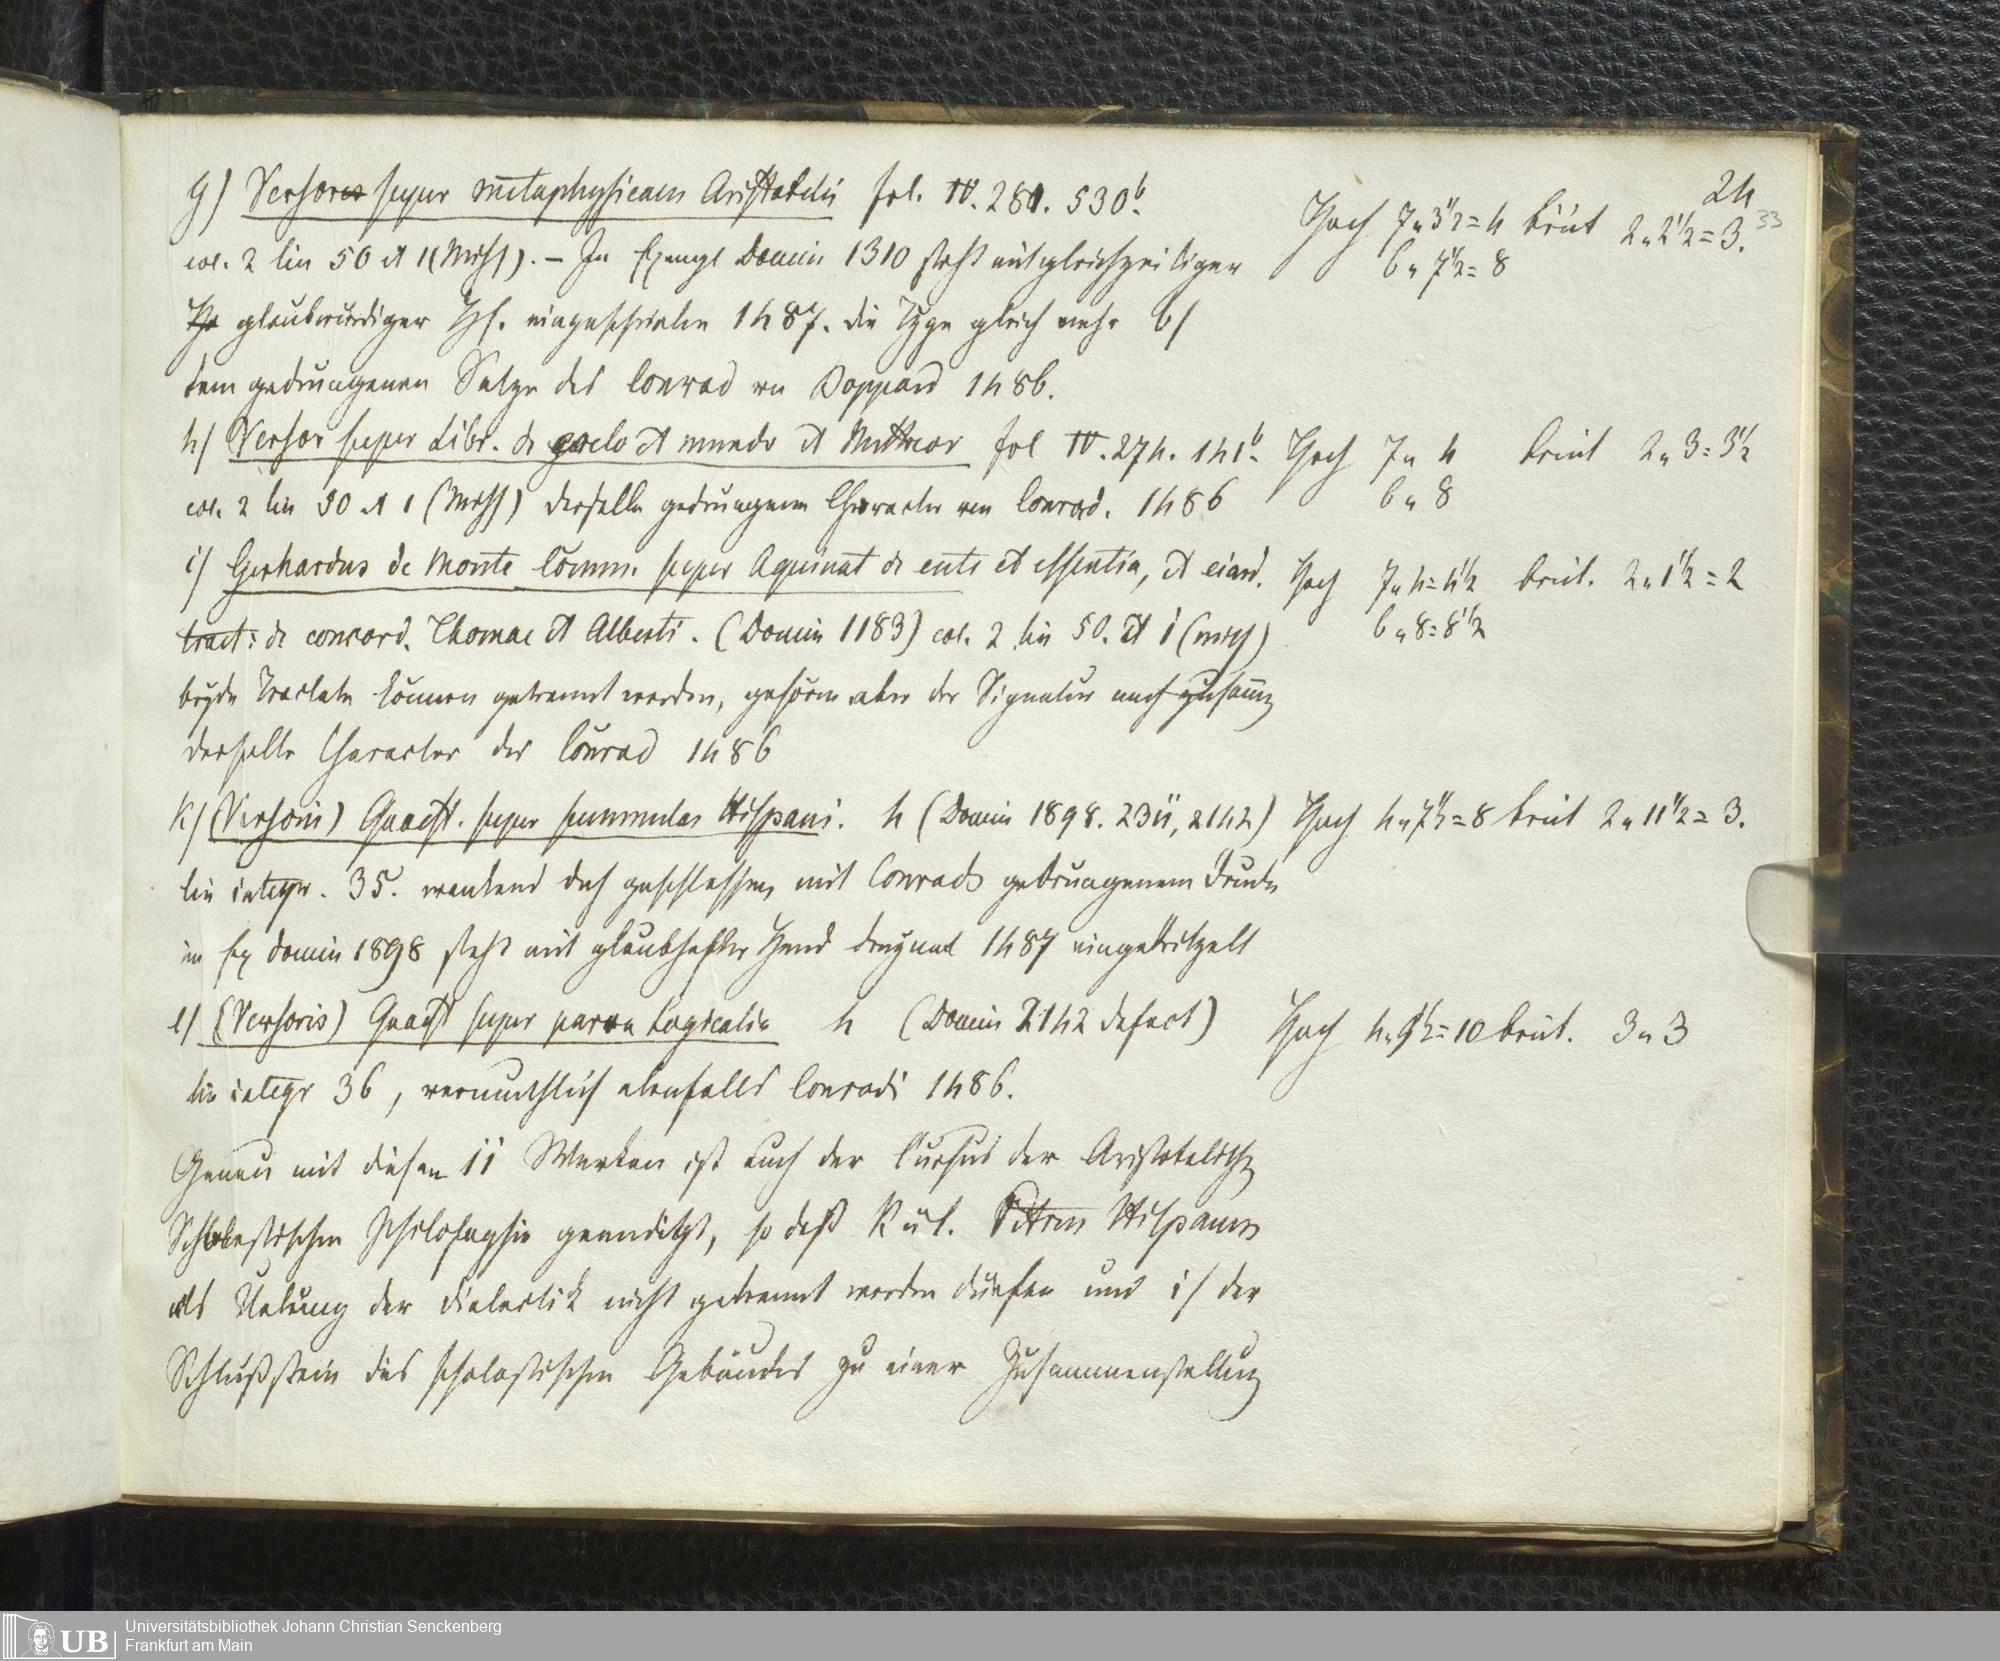 24
33
g) Versores super metaphysicam Aristotelis fol. IV. 281. 530b.
Hoch 7" 3½ = 4 breit 2" 2½ = 3.
6" 7½ = 8
col. 2 lin 50 et 1 (Mrsp). – In Exempl Domin 1310 steht mit gleichzeitiger
glaubwürdiger Hs. eingeschrieben 1487. die Type gleich mehr b)
dem gedrungenen Satze des Conrad von Boppard 1486.
h) Versor super Libr. de coelo et mundo et Metheor fol IV. 274. 141b.
Hoch 7" 4 breit 2" 3 = 3½
6" 8
col. 2 lin 50 et 1 (Mrsp) derselbe gedrungene Character von Conrad. 1486
i) Gerhardus de Monte Comm. super Aquinat de ente et essentia, et eiusd.
Hoch 7" 4 = 4½ breit. 2" 1½ = 2
6" 8 = 8½
tract: de concord. Thomae et Alberti. (Domin 1183) col. 2 lin 50. et 1 (mrsp)
beyde Tractate können getrennt werden, gehören aber der Signatur nach zusamen
derselbe Character des Conrad 1486
k) (Versoris) Quaest. super summulas Hispani. 4 (Domin 1898. 2142)
Hoch 4" 7½ = 8 breit 2" 11½ = 3.
lin integr. 35. wankend doch geschlossen, mit Conrads gedrungenem Drucke
im Ex Domin 1898 steht mit glaubhafter Hand dreymal 1487 eingekritzelt
l) (Versoris) Quaest super parva Logicalia 4 (Domin 2142 defect)
Hoch 4" 9½ = 10 breit. 3" 3
lin integr 36, vermuthlich ebenfalls Conradi 1486.
Genau mit diesen 11 Werken ist auch der Cursus der Aristotelisch
Scholastischen Philosophie geendigt, so daß k u l. Petrus Hispanus
als Uebung der Dialectik nicht getrennt werden dürfen und i) der
Schlußstein des scholastischen Gebäudes zu einer Zusammenstellung
Universitätsbibliothek Johann Christian Senckenberg
Frankfurt am Main
UB